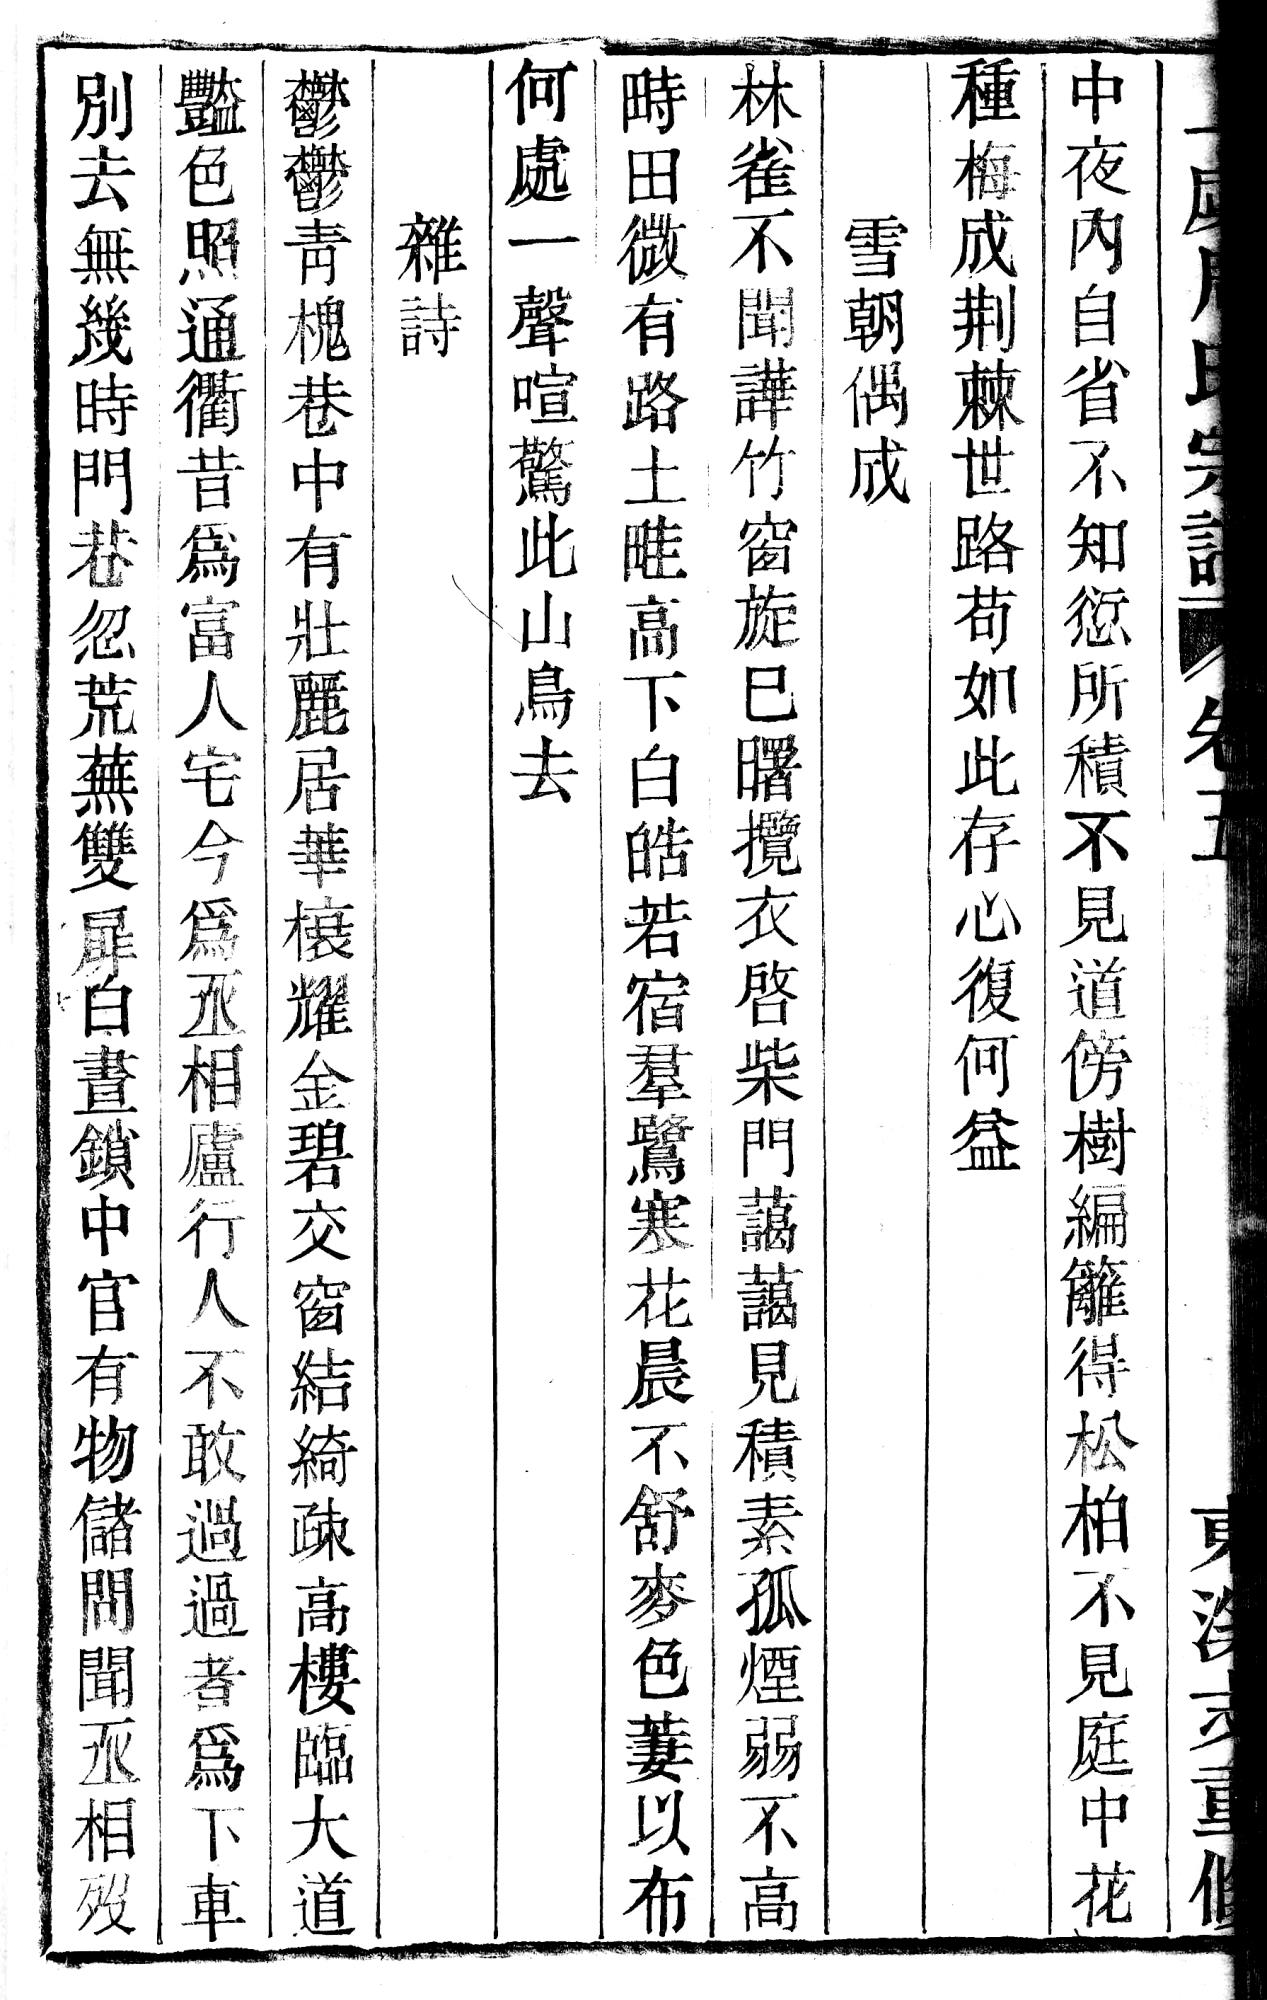 氏宗譜 卷五
中夜內自省不知愆所積不見道傍樹編籬得松柏不見庭中花
種梅成荆棘世路苟如此存心復何益
雪朝偶成
林雀不聞譁竹窗旋巳曙攬衣啓柴門藹藹見積素孤煙弱不高
畤田微有路土畦高下白皓若宿羣鷺寒花晨不舒麥色萋以布
何處一聲喧驚此山鳥去
雜詩
鬱鬱青槐巷中有壯麗居華榱耀金碧交窗結綺疎高樓臨大道
豔色照通衢昔爲富人宅今爲丞相廬行人不敢過過者爲下車
別去無幾時門巷忽荒蕪雙扉白晝鎖中官有物儲問聞丞相歿